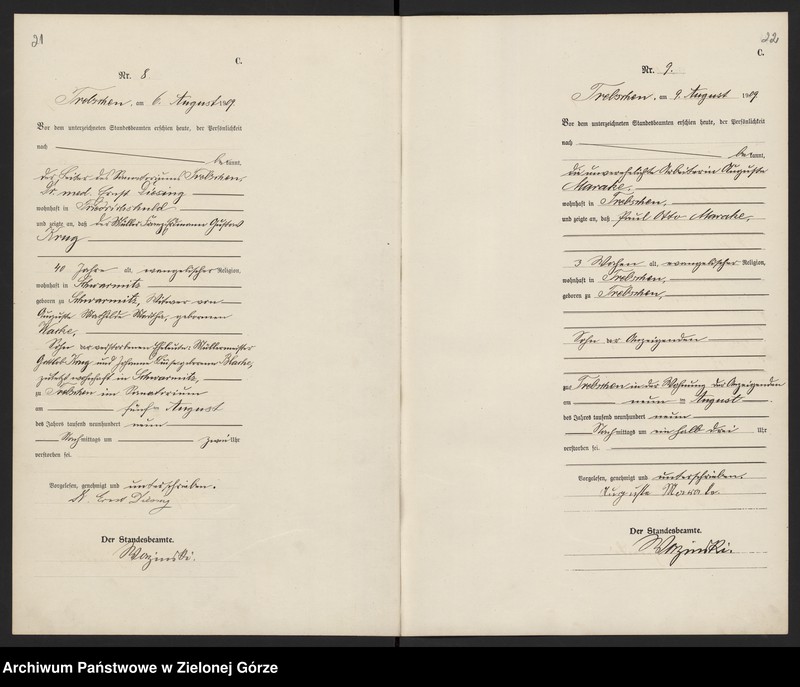 21
C.
Nr. 8
Trebschen, am 6. August 1909
Vor dem unterzeichneten Standesbeamten erschien heute, der Persönlichkeit
nach
be kannt,
der Leiter des Sanatoriums Trebschen,
Dr. med. Ernst Diesing
wohnhaft in
und zeigte an, daß der Müller Gustav
Krug
40 Jahre alt, evangelischer Religion,
wohnhaft in Schwarmitz
geboren zu Schwarmitz, Witwer von
Auguste Mathilde Martha, geborenen
Sohn der verstorbenen Eheleute Müllermeister
Gottlob Krug und Johanne geborene
zuletzt wohnhaft in Schwarmitz,
zu Trebschen im Sanatorium
am fünften August
des Jahres tausend neunhundert neun
Nach mittags um zwei Uhr
verstorben sei.
Vorgelesen, genehmigt und unterschrieben.
Dr. Ernst Diesing
Der Standesbeamte.
22
C.
Nr. 9.
Trebschen, am 9. August 1909.
Vor dem unterzeichneten Standesbeamten erschien heute, der Persönlichkeit
nach
be kannt,
die unverehelichte Arbeiterin Auguste
wohnhaft in Trebschen,
und zeigte an, daß Paul Otto
3 Wochen alt, evangelischer Religion,
wohnhaft in Trebschen,
geboren zu Trebschen,
Sohn der Anzeigenden
zu Trebschen in der Wohnung der Anzeigenden
am neunten August
des Jahres tausend neunhundert neun
Nach mittags um ein halb drei Uhr
verstorben sei.
Vorgelesen, genehmigt und unterschrieben.
Auguste
Der Standesbeamte.
Archiwum Państwowe w Zielonej Górze